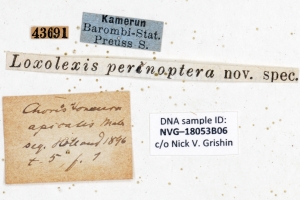 43691
Kamerun
Barombi-Stat.
Preuss S.
Loxolexis perinoptera nov. spec.
apicalis Mab
seg. Holland 1896
t. 5 f. 1
DNA sample ID:
NVG–18053B06
c/o Nick V. Grishin